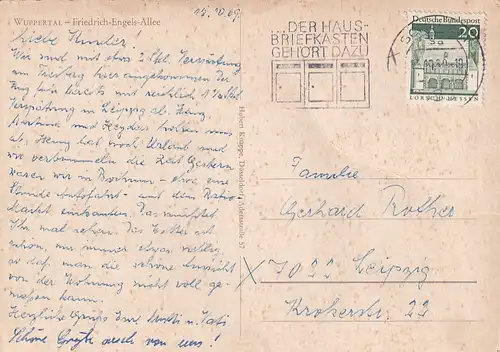 15.10.69.
WUPPERTAL – Friedrich-Engels-Allee
Liebe Kinder!
Wir sind mit etwa 2 Std. Verspätung
am Freitag hier angekommen. Der
Zug fuhr bereits mit reichlich 1 ½ Std.
Verspätung in Leipzig ab. Heinz,
Martina und Heydars holten uns
ab. Heinz hat noch Urlaub und
wir verbummeln die Zeit. Gestern
waren wir in Bochum – etwa eine
Stunde Autofahrt – und dem Ratio
Markt einkaufen. Das müßtet
Ihr mal sehen. Das Wetter ist
schön, nur immer etwas neblig
so daß man die schöne Aussicht
von der Wohnung nicht voll ge-
nießen kann.
Herzliche Grüße Eure Mutti u. Vati
Schöne Grüße auch von uns!
Hubert Knippe, Düsseldorf, 57
DER HAUS-
BRIEFKASTEN
GEHÖRT DAZU
Deutsche Bundespost
20
LORSCH/HESSEN
Familie
Gerhard Rother
7022 Leipzig
Krokerstr. 22